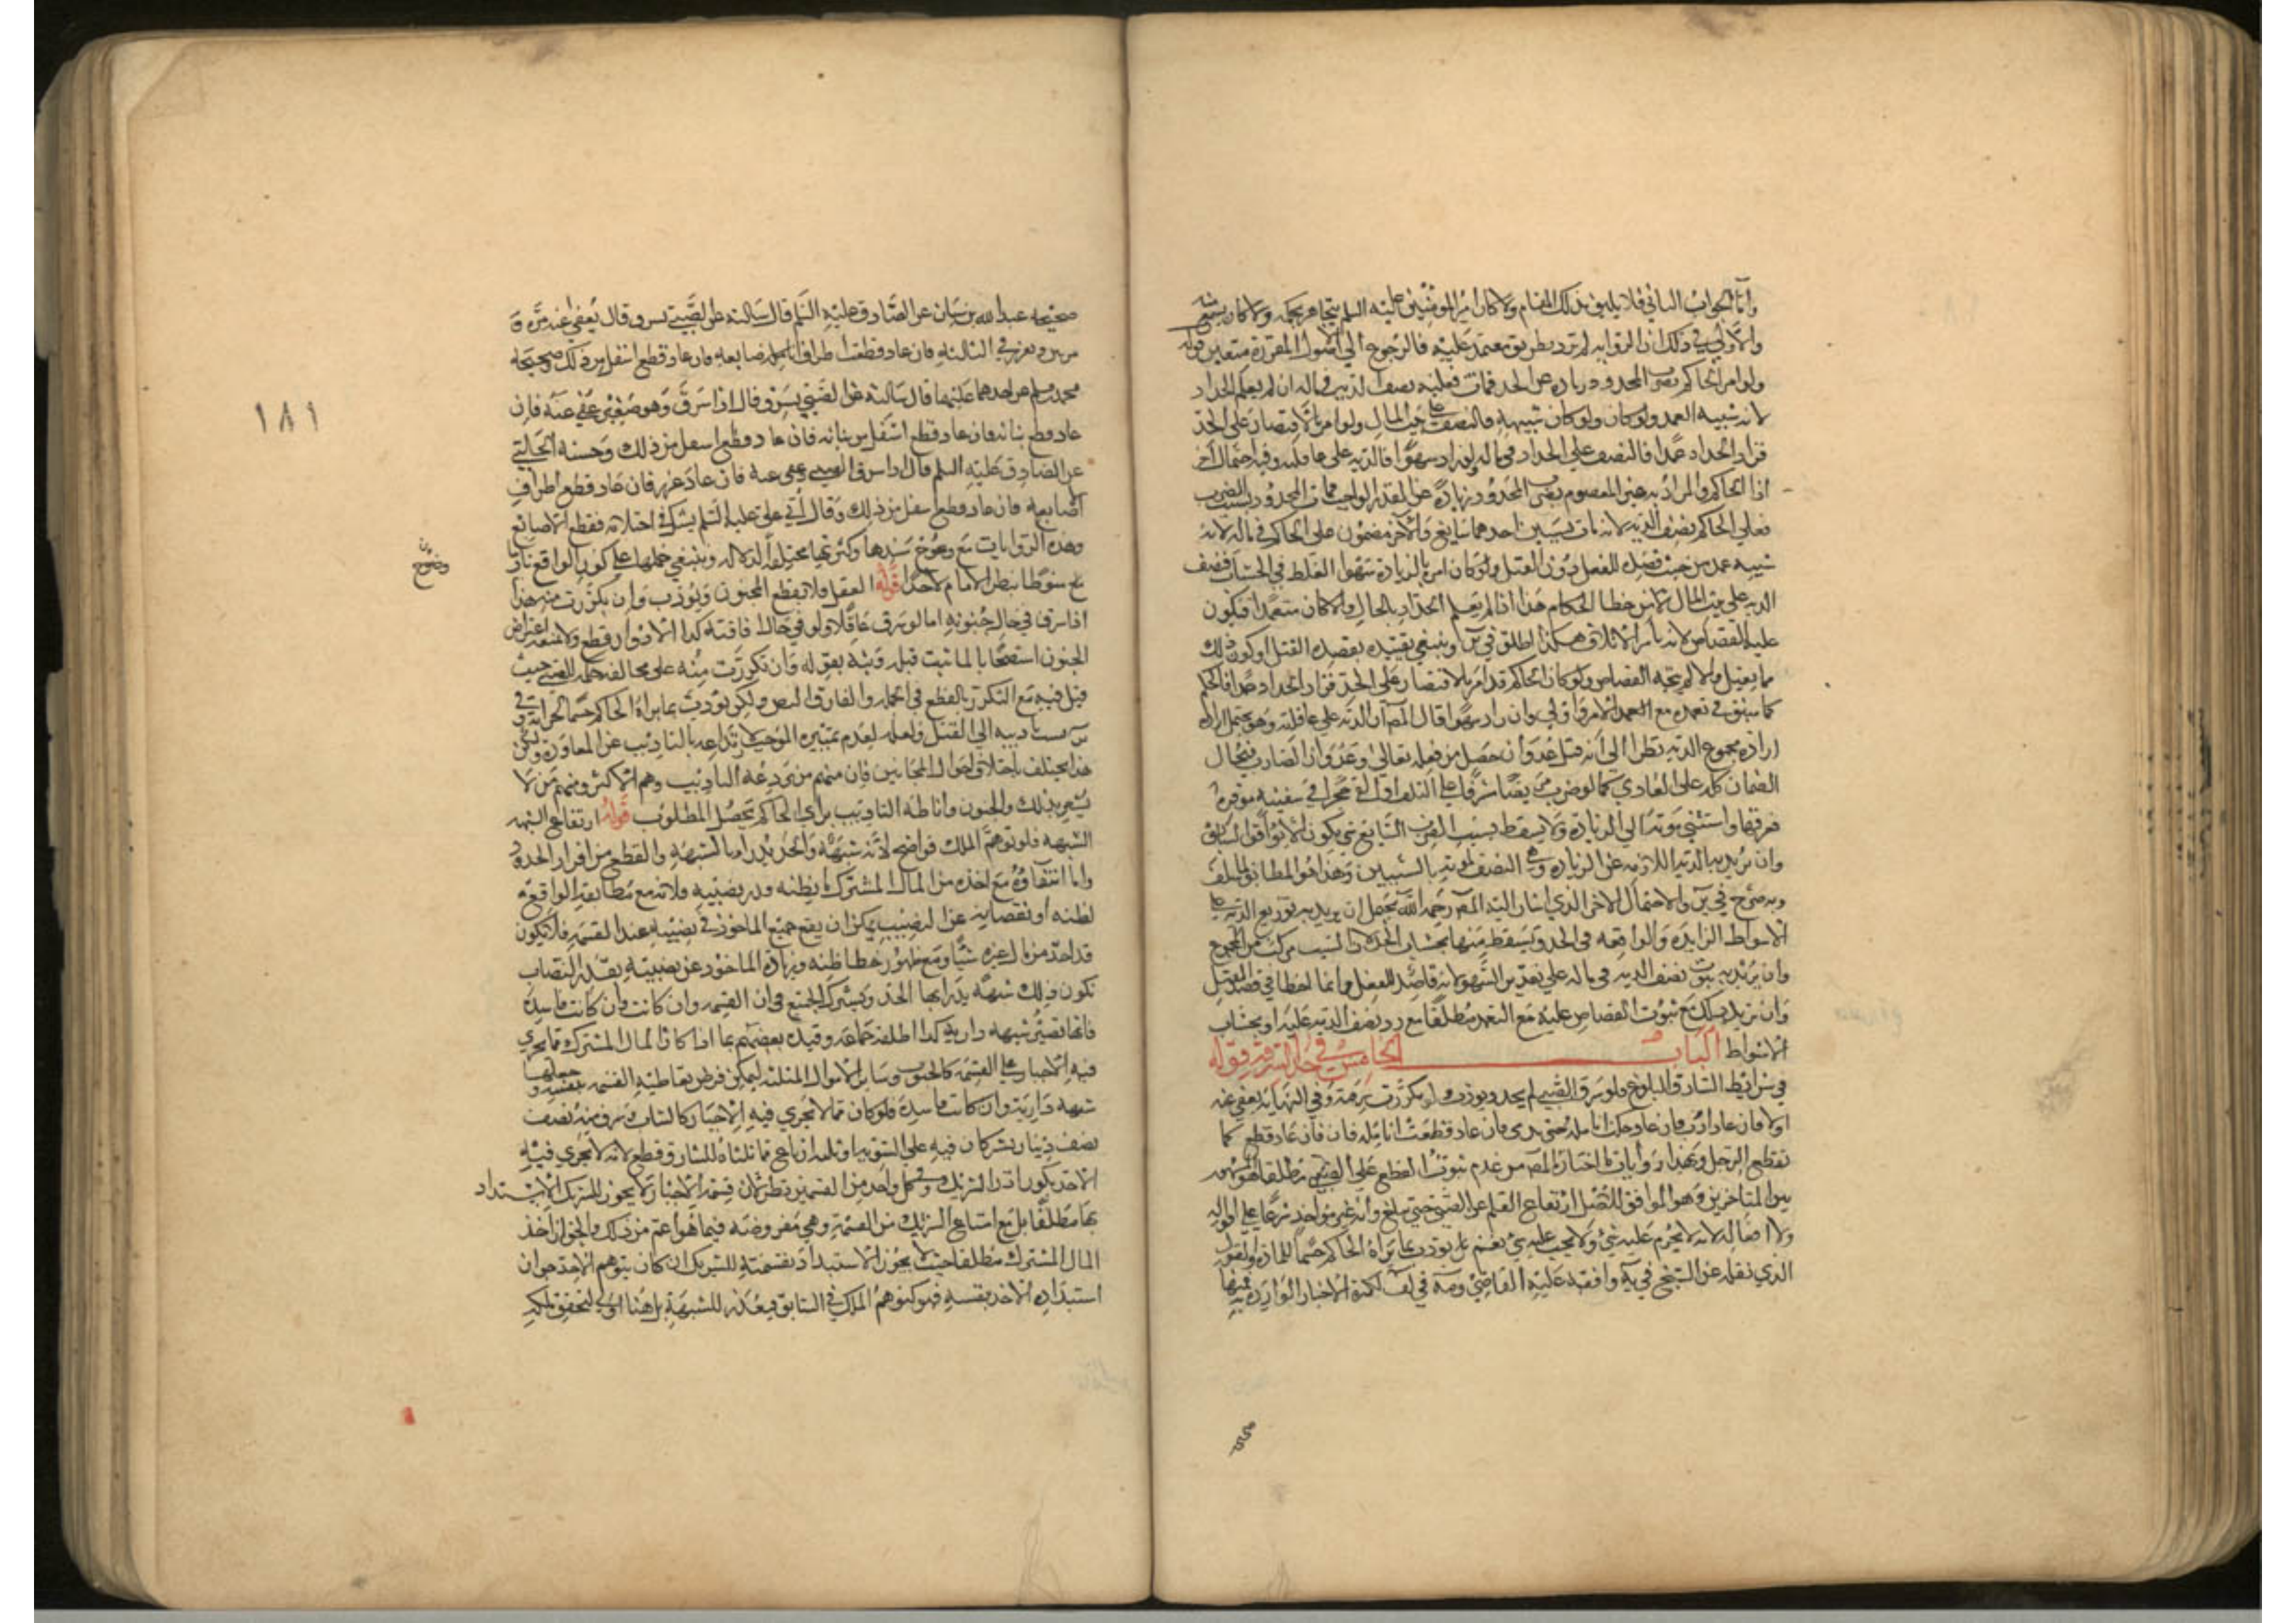 وأما الجواب الثاني فلا يليق بذلك المقام ولا كان أمير المؤمنين عليه السلم يتجاهر بحكمه ولا كان
والأولى في ذلك ان الرواية لم ترد بطريق معتمد عليه فالرجوع الى الأصول المقررة متعين قوله
ولو امر الحاكم بضرب المحدود زيادة عن الحد فمات فعليه نصف الدية في ماله ان لم يعلم الحداد
لانه شبيه العمد ولو كان ولو كان سهوا فالنصف على بيت المال ولو امر بالاقتصار على الحد
فزاد الحداد عمدا فالنصف على الحداد في ماله ولو زاد سهوا فالدية على عاقلته وفيه احتمال آخر
اذا الحاكم والمراد به غير المعصوم بضرب المحدود زيادة عن المقدر الواجب فمات المحدود بسبب الضرب
فعلى الحاكم نصف الدية لانه مات بسببين احدهما سايغ والآخر مضمون على الحاكم في ماله لانه
شبيه عمد من حيث قصده للفعل دون القتل ولو كان امره بالزيادة سهوا لغلط في الحساب فنصف
الدية على بيت المال لانه من خطا الحكام هذا اذا لم يعلم الحداد بالحال والا كان متعمدا فيكون
عليه القصاص لانه باشر الاتلاف هكذا اطلق في وينبغي تقييده بقصده القتل او كون ذلك
مما يقتل والا لم يتجه القصاص ولو كان الحاكم قد امر بالاقتصار على الحد فزاد الحداد عمدا فالحكم
كما سبق في تعمده مع العمد الامر واولى وان زاد سهوا قال المص ان الدية على عاقلته وهو يحتمل
ارادة مجموع الدية نظرا الى انه قتل عدوان حصل من فعله تعالى وعدوان الضارب فيحال
الضمان كله على العادي كما لو ضرب مريضا مشرفا على التلف او القى حجرا في سفينة موقرة
فغرقها واستثنى موته الى الزيادة ولا يسقط بسبب الضرب السايغ شي
وان يريد به الدية اللازمة عن الزيادة وهي النصف لموته بالسببين وهذا هو المطابق لما سلف
وبه صرح في والاحتمال الاخر الذي اشار اليه المص رحمه الله يحتمل ان يريد به توزيع الدية على
الاسواط الزايدة والواقعة في الحد ويسقط منها بحساب الحد لان السبب مركب من المجموع
وان يريد به ثبوت نصف الدية في ماله على تقدير السهو لانه قاصد للفعل وانما اخطا في قصد القتل
وان يريد بذلك مع ثبوت القصاص عليه مع التعمد مطلقا مع رد نصف الدية عليه او بحساب
الاسواط الباب الخامس في حد السرقة قوله
في شرائط السارق البلوغ فلو سرق الصبي لم يحد ويؤدب ولو تكررت سرقته وفي النهاية يعفى عنه
اولا فان عاد ادب فان عاد حكت انامله حتى تدمى فان عاد قطعت انامله فان فان عاد قطع كما
يقطع الرجل وبهذا روايات ما اختاره المص من عدم ثبوت القطع على الصبي مطلقا هو المشهور
بين المتاخرين وهو الموافق للاصل لارتفاع القلم عن الصبي حتى يبلغ وانه غير مواخذ شرعا على اقواله
ولا افعاله لانه لا يحرم عليه شي ولا يجب عليه شي نعم بل يودب بما يراه الحاكم حسما للمادة والقول
الذي نقله عن الشيخ في يه وافقه عليه القاضي ومة في لف لكثرة الاخبار الواردة به فمنها
صحيحة عبد الله بن سنان عن الصادق عليه السلم قال سالته عن الصبي يسرق قال يعفى عنه مرة و
مرتين ويعزر في الثالثة فان عاد قطعت اطراف اصابعه فان عاد قطع اسفل من ذلك وصحيحة
محمد بن مسلم عن احدهما عليهما قال سالته عن الصبي يسرق قال اذا سرق وهو صغير عفي عنه فان
عاد قطع بنانه فان عاد قطع اسفل من بنانه فان عاد قطع اسفل من ذلك وحسنة الحلبي
عن الصادق عليه السلم قال اذا سرق الصبي عفي عنه فان عاد عزر فان عاد قطع اطراف
اصابعه فان عاد قطع اسفل من ذلك وقال أتي علي عليه السلم بغلام يشك في احتلامه فقطع اطراف الاصابع
وهذه الروايات مع وضوح سندها وكثرتها مختلفة الدلالة وينبغي حملها على كون الواقع تاديبا
منوطا بنظر الامام لا حدا قوله العقل فلا يقطع المجنون ويؤدب وان تكررت منه هذا
اذا سرق في حال جنونه اما لو سرق عاقلا ولو في حال افاقته كذا الادوار قطع ولا يمنعه اعتراض
الجنون استصحابا لما ثبت قبله ونبه بقوله وان تكررت منه على مخالفة حكمه للصبي حيث
قيل فيه مع التكرر بالقطع في الجملة والفارق النص ولكن يؤدب بما يراه الحاكم حسما
هذا يختلف باختلاف احوال المجانين فان منهم من يردعه التاديب وهم الاكثر ومنهم من لا
يشعر بذلك والجنون واناطة التاديب براي الحاكم يحصل المطلوب قوله ارتفاع الشبهة
الشبهة فلو توهم الملك فواضح لانه شبهة والحد يدرا بالشبهة والقطع من افراد الحدود
واما انتفاؤه مع اخذه من المال المشترك ما يظنه قدر نصيبه فلانه مع مطابقة الواقع
لظنه او نقصانه عن النصيب يمكن ان يقع جميع الماخوذ في نصيبه عند القسمة فلا يكون
قد اخذ من مال غيره شيا ومع ظهور خطا ظنه وزيادة الماخوذ عن نصيبه بقدر النصاب
تكون ذلك شبهة يدرا بها الحد ويشترك الجميع في ان القسمة وان كانت وان كانت فاسدة
فانها تصير شبهة دارية كذا اطلقه جماعة وقيده بعضهم بما اذا كان المال المشترك مما يجري
فيه الاجبار على القسمة كالحبوب وساير الاموال المثلية ليمكن فرض تعاطيه القسمة بنفسه و جعلها
شبهة دارية وان كانت فاسدة فلو كان مما لا يجري فيه الاجبار كالثياب فسرق منه نصف
نصف دينار يشتركان فيه على السوية او ثلثه ارباع مما ثلثاه للسارق قطع لانه لا يجري فيه
الاخذ بدون اذن الشريك وفي كل واحد من القسمين نظر لان قسمة الاجبار لا يجوز للشريك الاستبداد
بها مطلقا بل مع امتناع الشريك من القسمة وهي مفروضة فيما هو اعم من ذلك والجواز اخذ
المال المشترك مطلقا حيث لا يجوز الاستبداد بقسمته للشريك ان كان بتوهم الاخذ جواز
استبداده الاخذ بنفسه فهو كتوهم الملك في السابق فيعذر للشبهة بل هنا اولى لتحقق ملكه
وضوح
١٨١